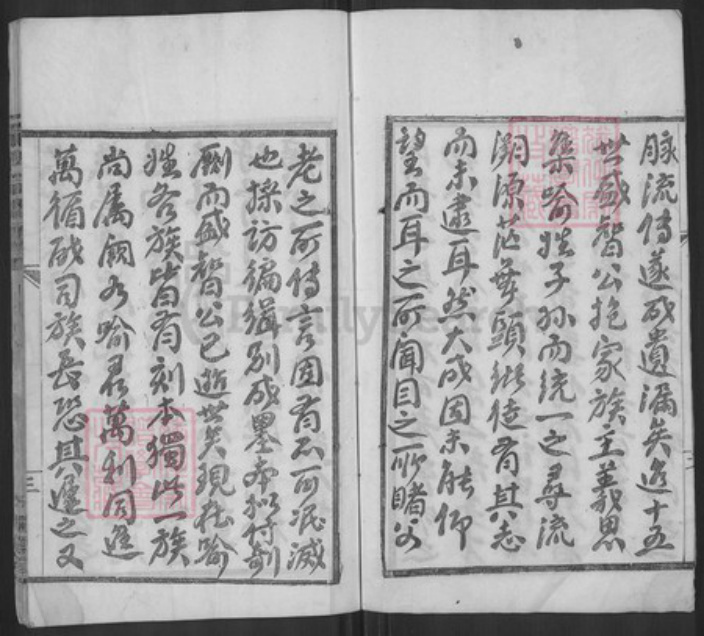 脉流傳遂成遺漏矣迨十五
世盛智公抱家族主義思
集喻姓子孫而統一之尋流
溯源茫無頭緒徒有其志
而未逮耳然大成固未能仰
望而耳之所聞目之所睹父
老之所傳言固有不可泯滅
也採访編緝别成墨本拟付剞
劂而盛智公已逝世矣現在喻
姓各族皆有刻本獨此一族
尚属阙如喻君萬利同進
萬循殷司族長恐其遲之又
三
FamilySearch